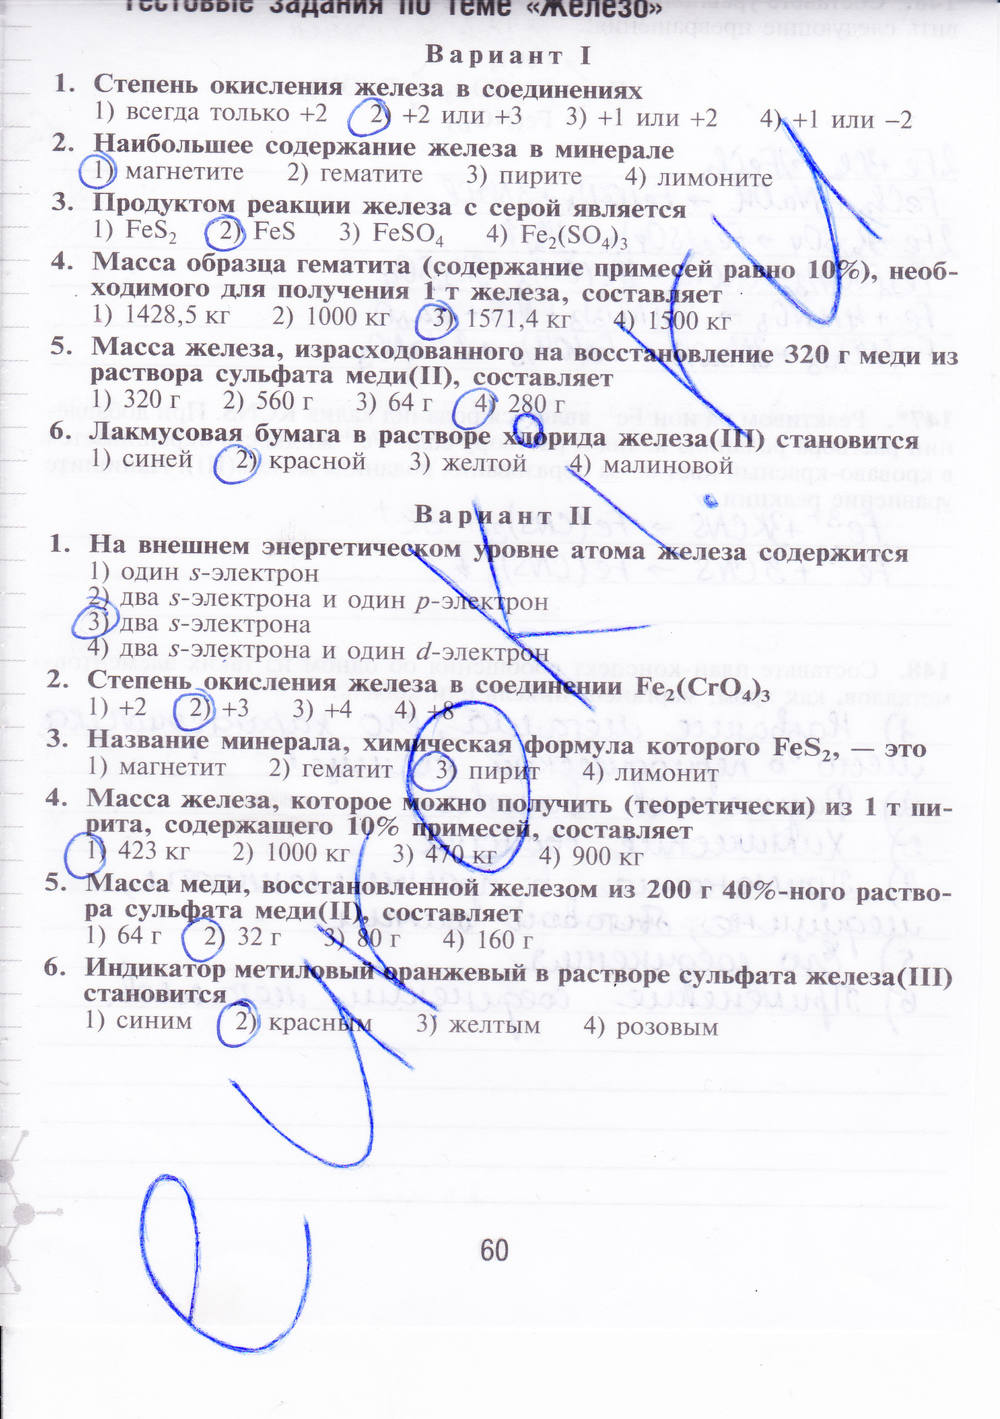 тестовые задания по теме «Железо»
Вариант I
1. Степень окисления железа в соединениях
1) всегда только +2 2) +2 или +3 3) +1 или +2 4) +1 или −2
2. Наибольшее содержание железа в минерале
1) магнетите 2) гематите 3) пирите 4) лимоните
3. Продуктом реакции железа с серой является
1) FeS₂ 2) FeS 3) FeSO₄ 4) Fe₂(SO₄)₃
4. Масса образца гематита (содержание примесей равно 10%), необ-
ходимого для получения 1 т железа, составляет
1) 1428,5 кг 2) 1000 кг 3) 1571,4 кг 4) 1500 кг
5. Масса железа, израсходованного на восстановление 320 г меди из
раствора сульфата меди(II), составляет
1) 320 г 2) 560 г 3) 64 г 4) 280 г
6. Лакмусовая бумага в растворе хлорида железа(III) становится
1) синей 2) красной 3) желтой 4) малиновой
Вариант II
1. На внешнем энергетическом уровне атома железа содержится
1) один s-электрон
2) два s-электрона и один p-электрон
3) два s-электрона
4) два s-электрона и один d-электрон
2. Степень окисления железа в соединении Fe₂(CrO₄)₃
1) +2 2) +3 3) +4 4) +8
3. Название минерала, химическая формула которого FeS₂, — это
1) магнетит 2) гематит 3) пирит 4) лимонит
4. Масса железа, которое можно получить (теоретически) из 1 т пи-
рита, содержащего 10% примесей, составляет
1) 423 кг 2) 1000 кг 3) 470 кг 4) 900 кг
5. Масса меди, восстановленной железом из 200 г 40%-ного раство-
ра сульфата меди(II), составляет
1) 64 г 2) 32 г 3) 80 г 4) 160 г
6. Индикатор метиловый оранжевый в растворе сульфата железа(III)
становится
1) синим 2) красным 3) желтым 4) розовым
60